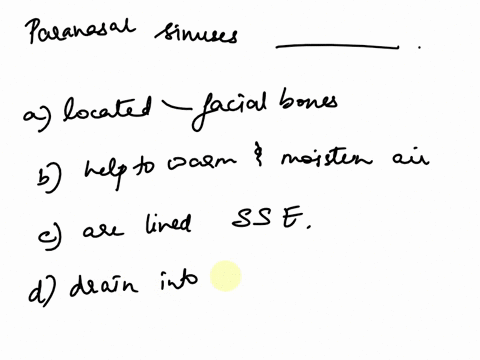 Paranasal sinuses ________ .
a) located — facial bones
b) help to warm & moisten air
c) are lined SSE.
d) drain into